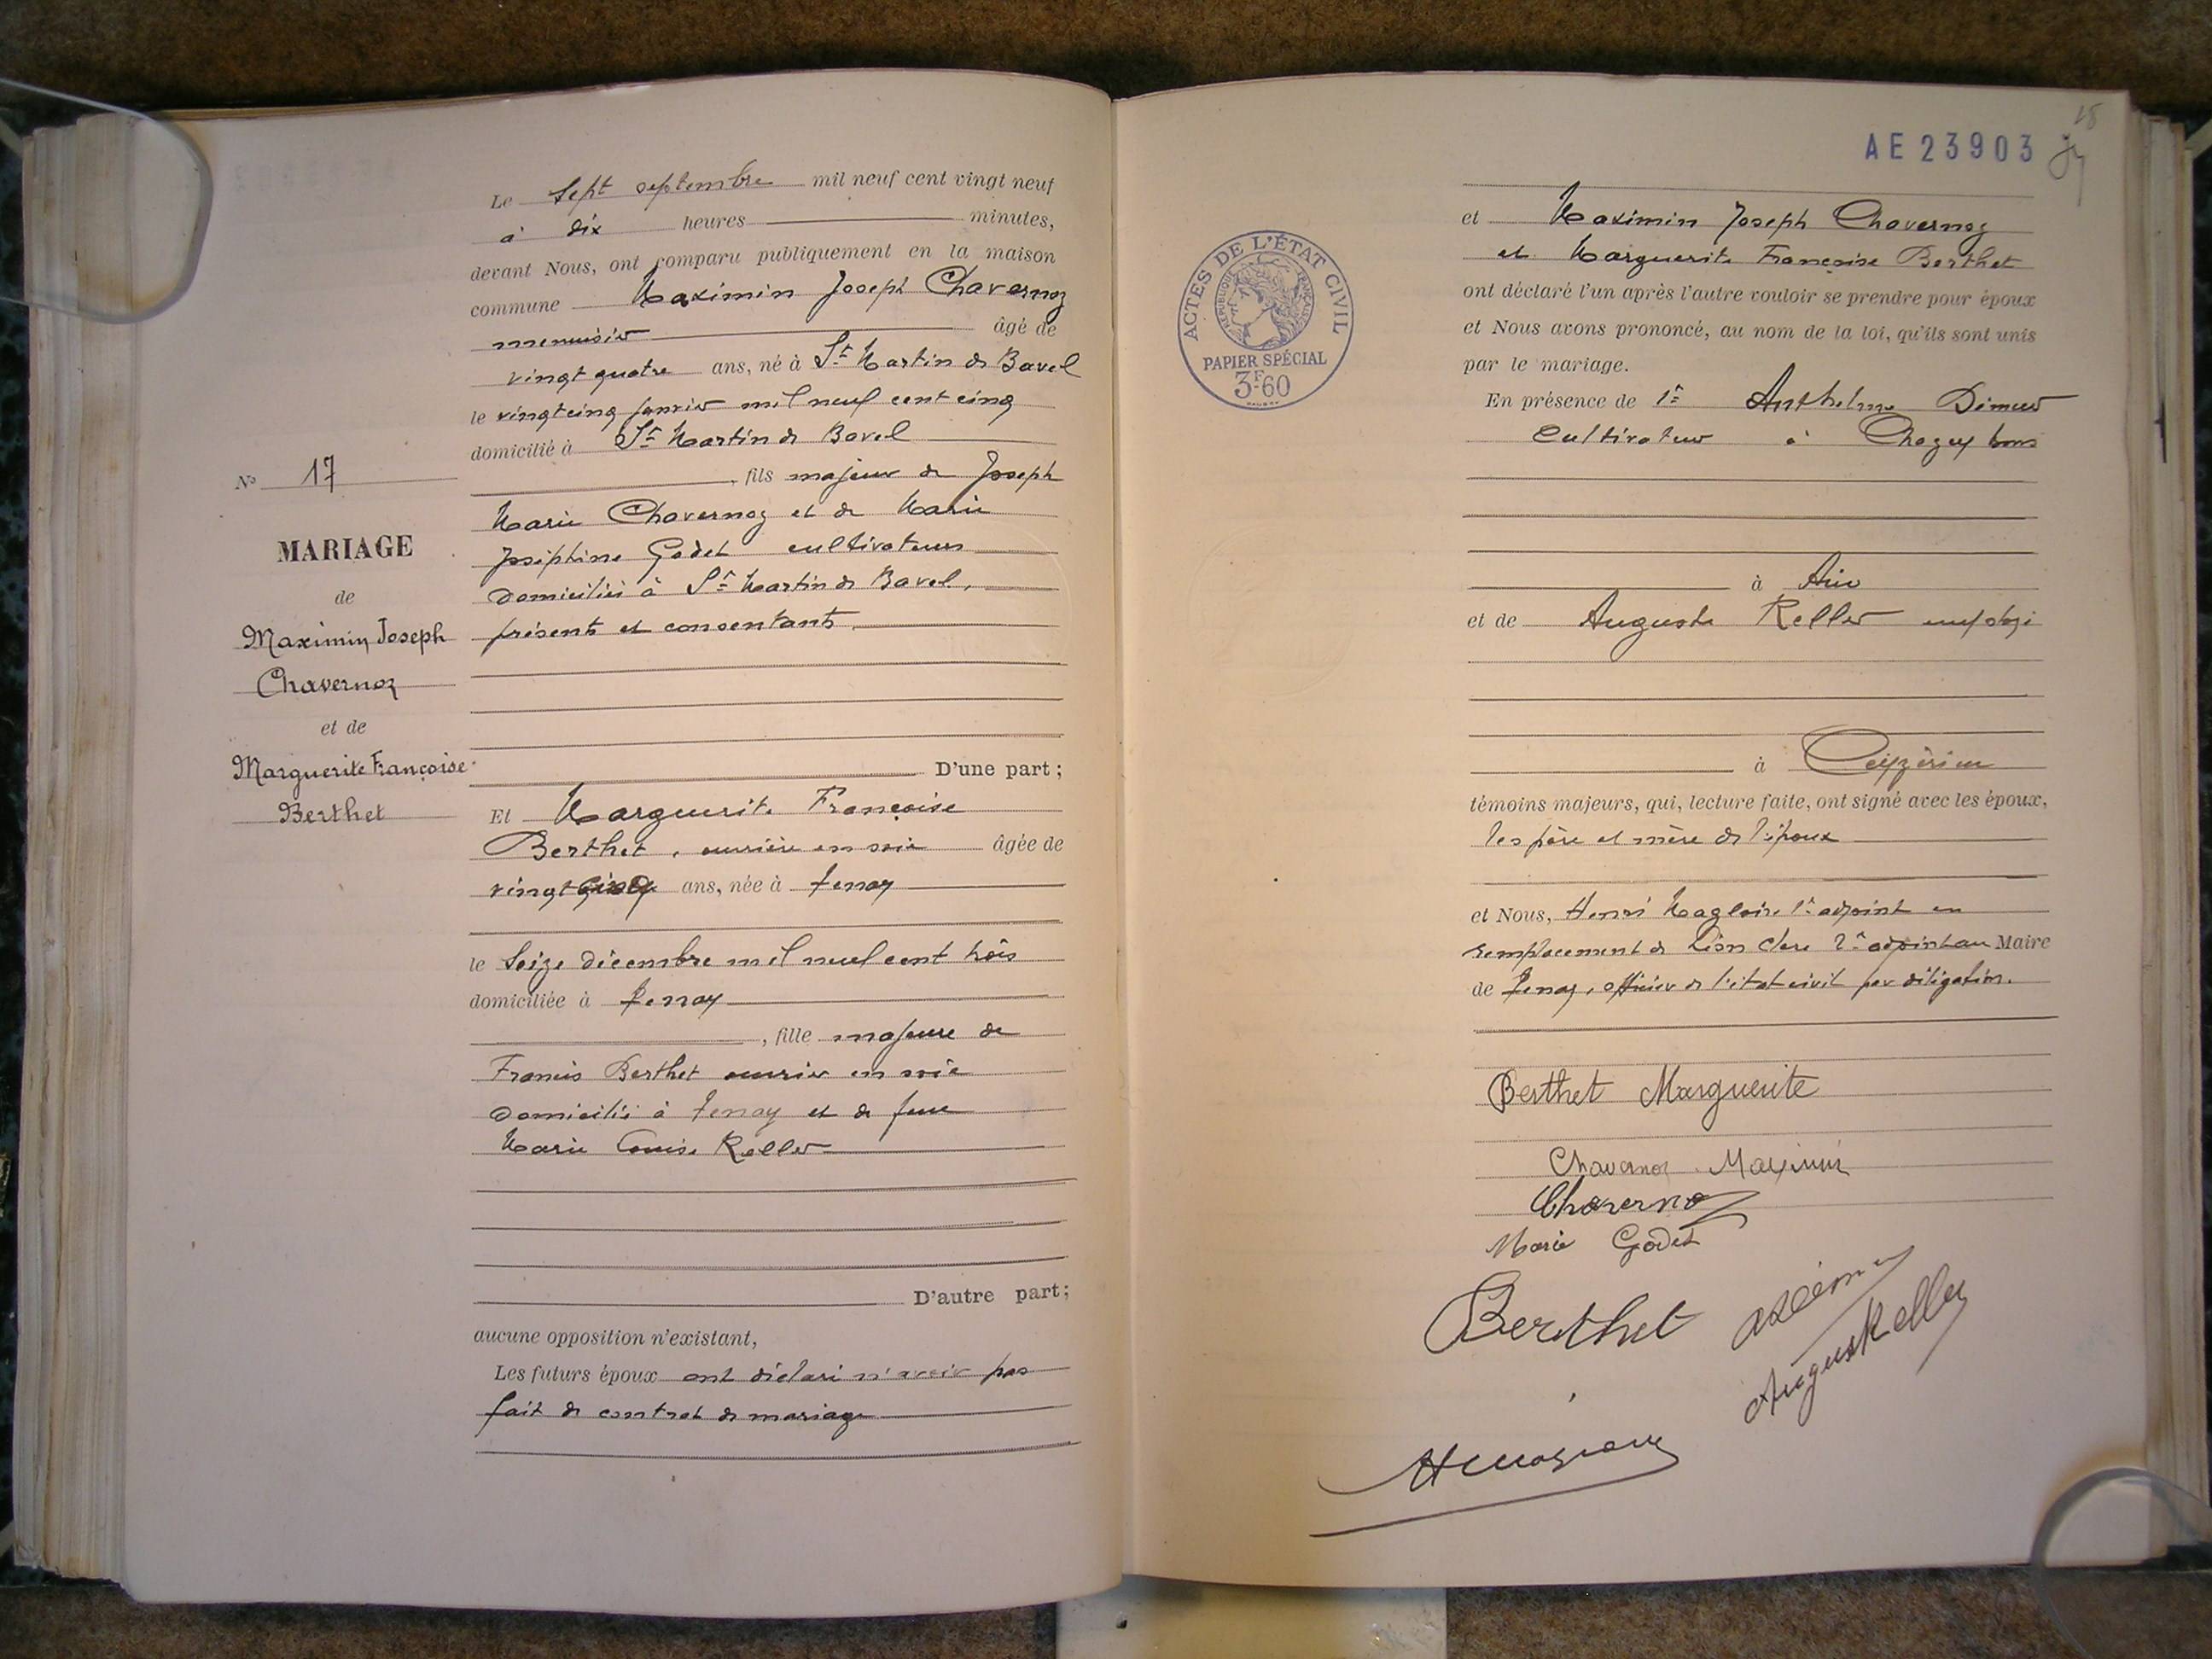 Le Sept septembre mil neuf cent vingt neuf
à dix heures minutes,
devant Nous, ont comparu publiquement en la maison
commune Maximin Joseph Chavernoz
menuisier âgé de
vingt quatre ans, né à St Martin de Bavel
le vingt cinq janvier mil neuf cent cinq
domicilié à St Martin de Bavel
, fils majeur de Joseph
Marie Chavernoz et de Marie
Joséphine Godet cultivateurs
domiciliés à St Martin de Bavel,
présents et consentants.
D'une part;
Nº 17
MARIAGE
de
Maximin Joseph
Chavernoz
et de
Marguerite Françoise
Berthet
Et Marguerite Françoise
Berthet, ouvrière en soie âgée de
vingt cinq ans, née à Tenay
le Seize décembre mil neuf cent trois
domiciliée à Tenay
, fille majeure de
Francis Berthet ouvrier en soie
domicilié à Tenay et de feue
Marie Louise Keller
D'autre part;
aucune opposition n'existant,
Les futurs époux ont déclaré n'avoir pas
fait de contrat de mariage
AE 23903
ACTES DE L'ÉTAT CIVIL
RÉPUBLIQUE FRANÇAISE
PAPIER SPÉCIAL
3F60
et Maximin Joseph Chavernoz
et Marguerite Françoise Berthet
ont déclaré l'un après l'autre vouloir se prendre pour époux
et Nous avons prononcé, au nom de la loi, qu'ils sont unis
par le mariage.
En présence de 1º Anthelme
Cultivateur à
à Ain
et de Auguste Keller employé
à Ceyzérieu
témoins majeurs, qui, lecture faite, ont signé avec les époux,
les père et mère de l'époux
et Nous, Henri Magloire 1er adjoint en
remplacement de Léon Clerc 2e adjoint au Maire
de Tenay, officier de l'état civil par délégation.
Berthet Marguerite
Chavernoz Maximin
Chavernoz
Marie Godet
Berthet
Auguste Keller